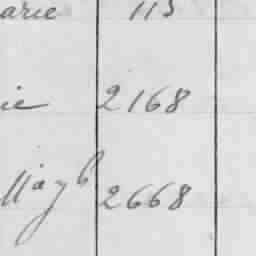 arie 113
ie 2168
2668